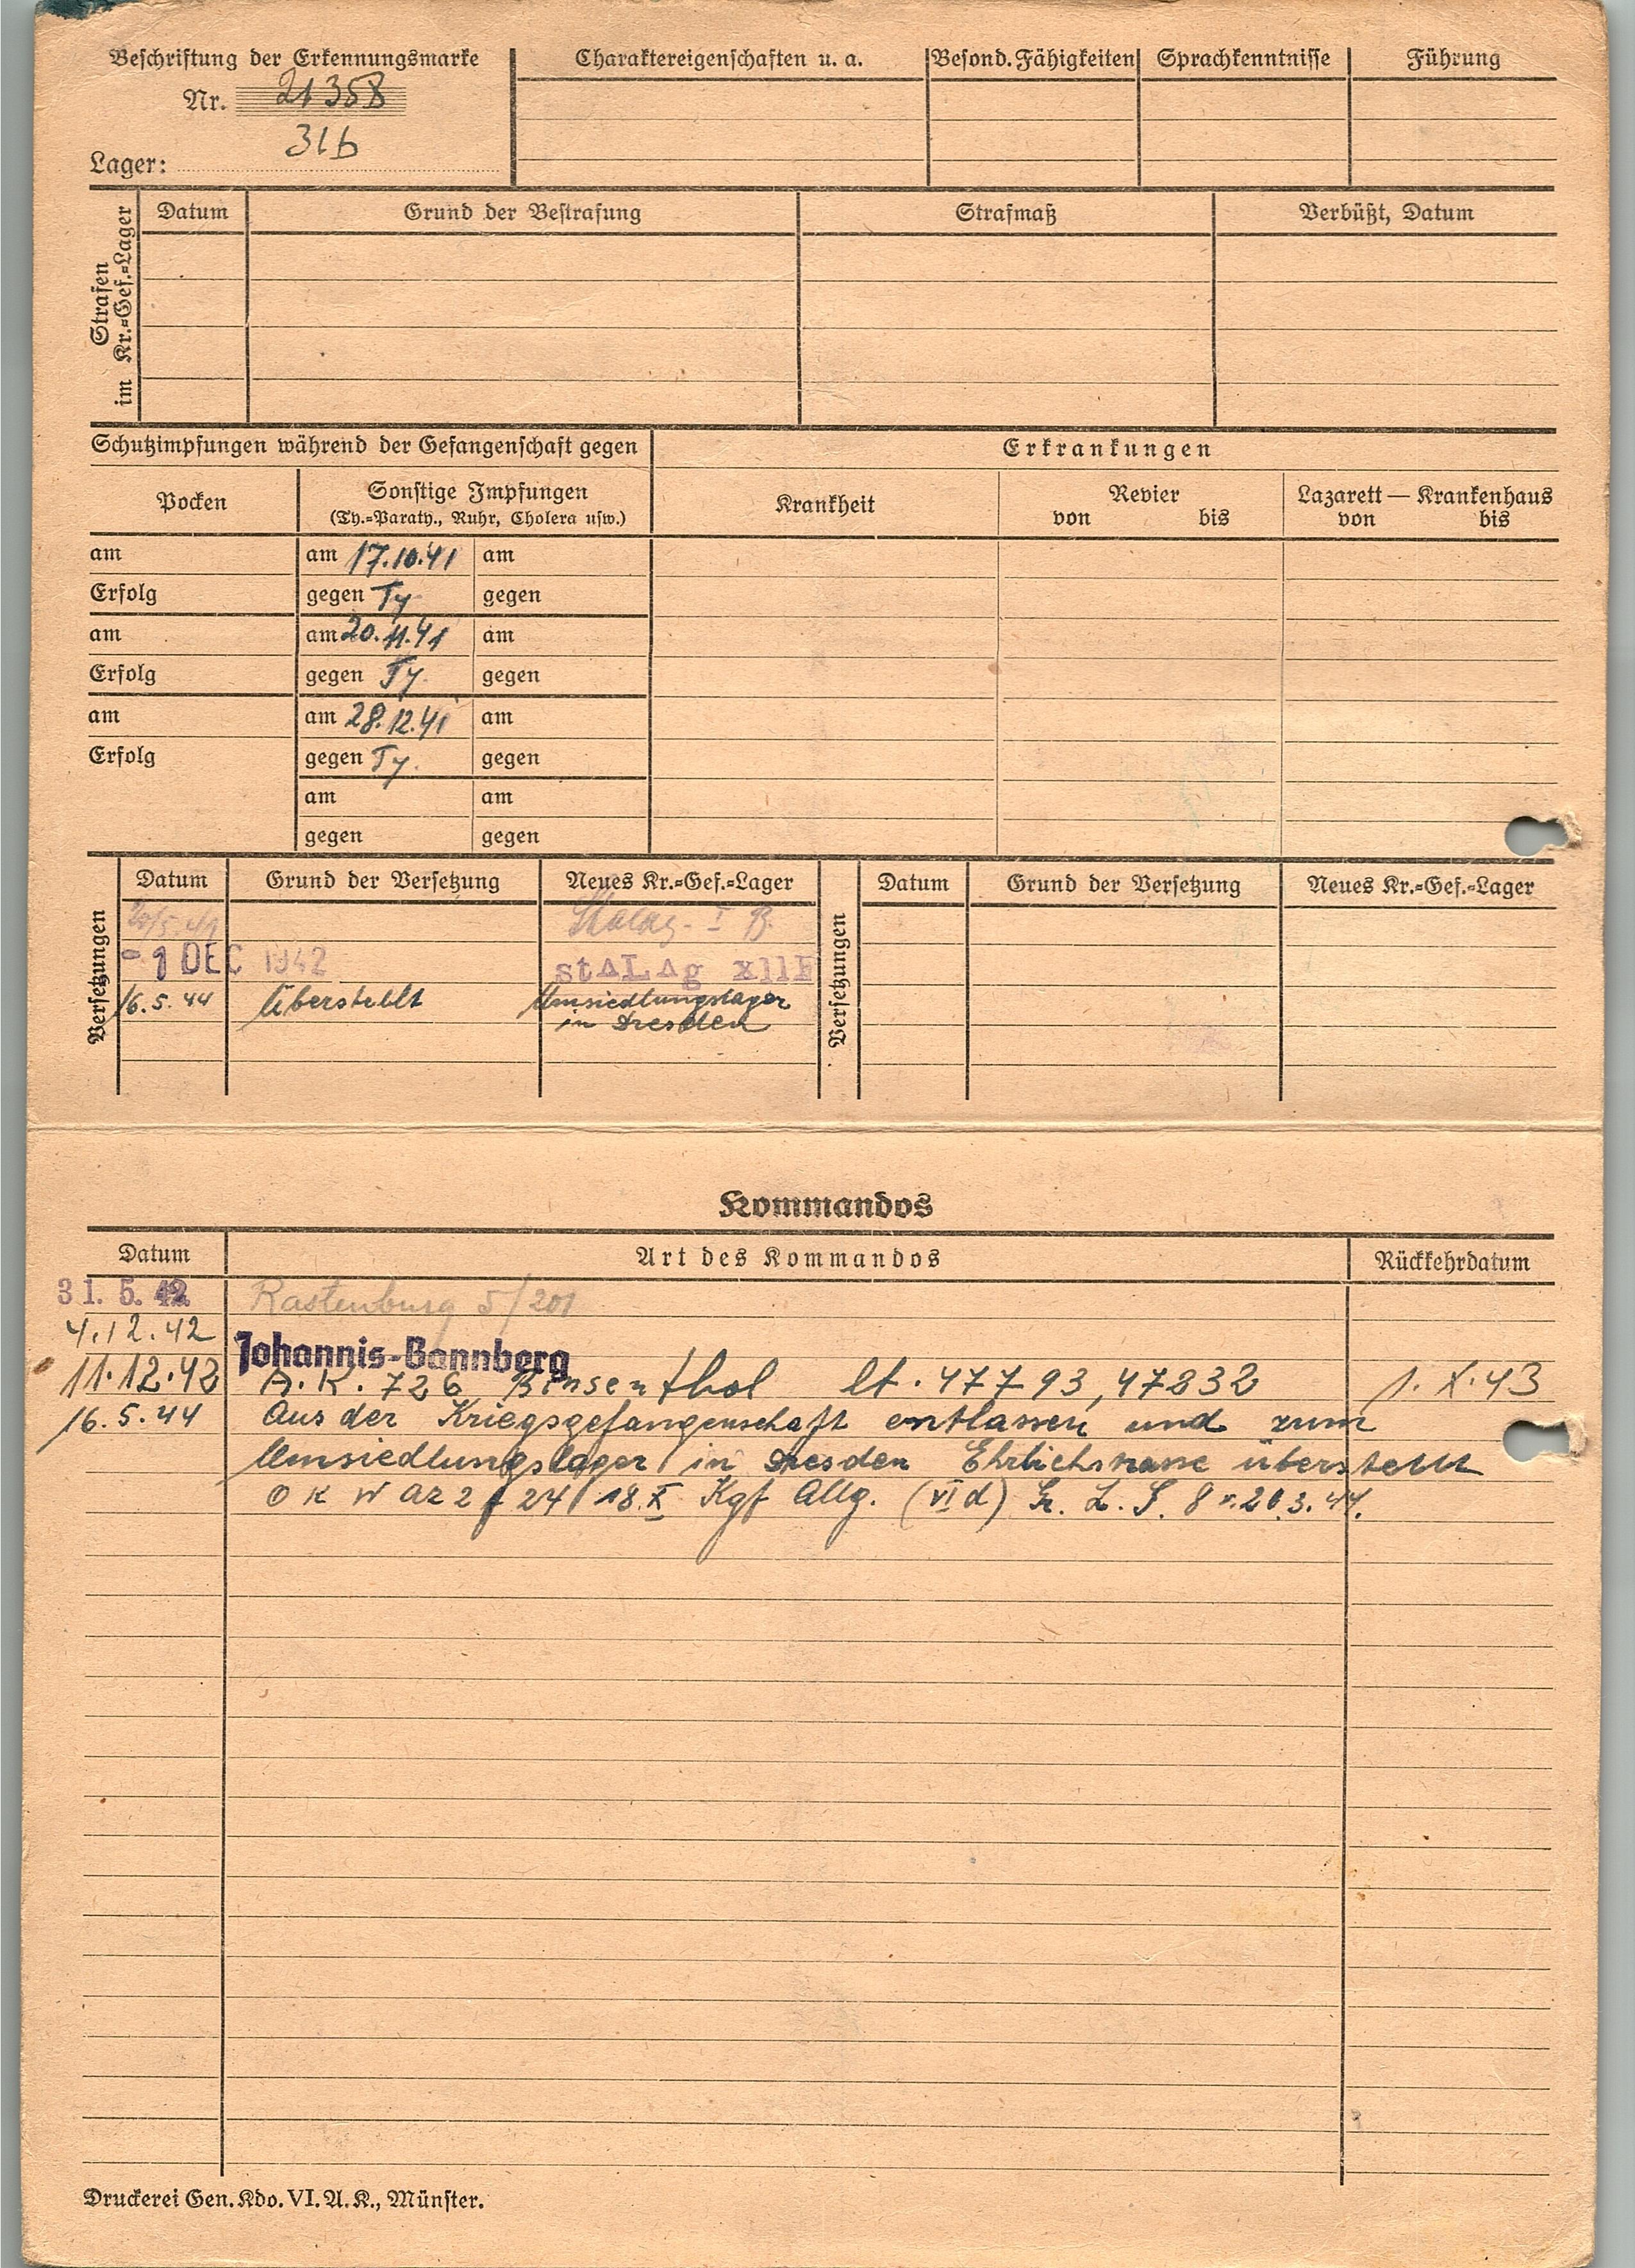 Beschriftung der Erkennungsmarke
Nr. 21358
31b
Lager:
Charaktereigenschaften u. a.
Besond. Fähigkeiten
Sprachkenntnisse
Führung
Strafen
im Kr.=Gef.=Lager
Datum
Grund der Bestrafung
Strafmaß
Verbüßt, Datum
Schutzimpfungen während der Gefangenschaft gegen
Erkrankungen
Pocken
Sonstige Impfungen
(Ty.=Paraty., Ruhr, Cholera usw.)
Krankheit
Revier
von bis
Lazarett — Krankenhaus
von bis
am am 17.10.41 am
Erfolg gegen Ty gegen
am am 20.11.41 am
Erfolg gegen Ty. gegen
am am 28.12.41 am
Erfolg gegen Ty. gegen
am am
gegen gegen
Versetzungen
Datum Grund der Versetzung Neues Kr.=Gef.=Lager
Stalag I B.
- 1 DEC 1942 stALAg xllF
16.5.44 Überstellt Umsiedlungslager
in Dresden
Versetzungen
Datum Grund der Versetzung Neues Kr.=Gef.=Lager
Kommandos
Datum Art des Kommandos Rückkehrdatum
31. 5. 42 Rastenburg 5/201
4.12.42 Johannis-Bannberg
11.12.42 A.K. 726 Binsenthal lt. 47793, 47832 1. X. 43
16.5.44 Aus der Kriegsgefangenschaft entlassen und zum
Umsiedlungslager in Dresden Ehrlichstrasse überstellt
O K W AZ 2 f 24/18.X Kgf Allg. (VI d) 8 v. 20.3.44.
Druckerei Gen. Kdo. VI. A. K., Münster.